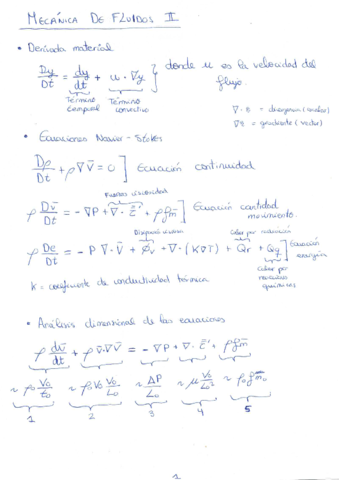 MECÁNICA DE FLUIDOS II
• Derivada material
Dy/Dt = dy/dt + u · ∇y ] donde u es la velocidad del flujo.
Término temporal Término convectivo
∇·B = divergencia (escalar)
∇B = gradiente (vector)
• Ecuaciones Navier-Stokes
Dρ/Dt + ρ∇v̄ = 0 ] Ecuación continuidad
Fuerzas viscosidad
ρ Dv̄/Dt = -∇P + ∇·Z̄' + ρf̄m ] Ecuación cantidad movimiento.
Disipación viscosa Calor por radiación
ρ De/Dt = -P ∇·V̄ + φv + ∇·(K∇T) + Qr + Qq ] Ecuación energía
Calor por reacciones químicas
K = coeficiente de conductividad térmica
• Análisis dimensional de las ecuaciones
ρ dv̄/dt + ρ v̄·∇v̄ = -∇P + ∇·Z̄' + ρf̄m
~ ρ₀ V₀/t₀ ~ ρ₀V₀ V₀/L₀ ~ ΔP/L₀ ~ μ V₀/L₀² ~ ρ₀f̄m₀
1 2 3 4 5
1